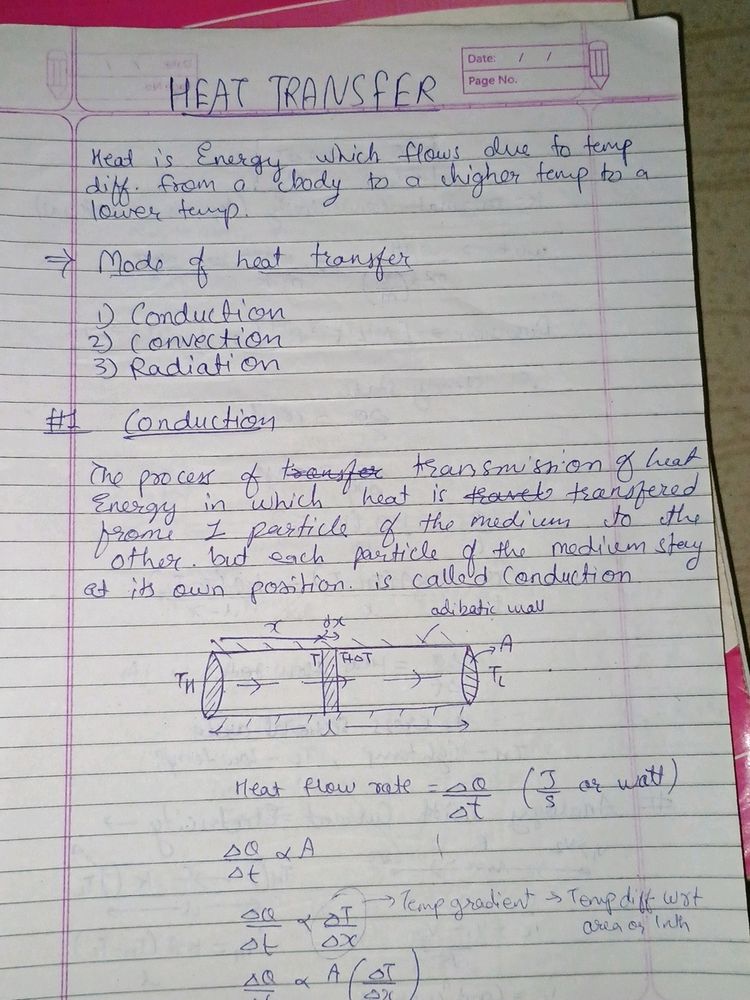 Date: / /
Page No.
HEAT TRANSFER
Heat is Energy which flows due to temp
diff. from a body to a higher temp to a
lower temp.
⇒ Mode of heat transfer
1) Conduction
2) Convection
3) Radiation
#1 Conduction
The process of transfer transmission of heat
Energy in which heat is transfered
frome 1 particle of the medium to the
other. but each particle of the medium stay
at its own position. is called Conduction
adibatic wall
x dx
A
TH T T+ΔT TL
l
Heat flow rate = ΔQ/Δt (J/s or watt)
ΔQ/Δt ∝ A
ΔQ/Δt ∝ ΔT/Δx → Temp gradient → Temp diff wrt
area or
ΔQ/Δt ∝ A (ΔT/Δx)